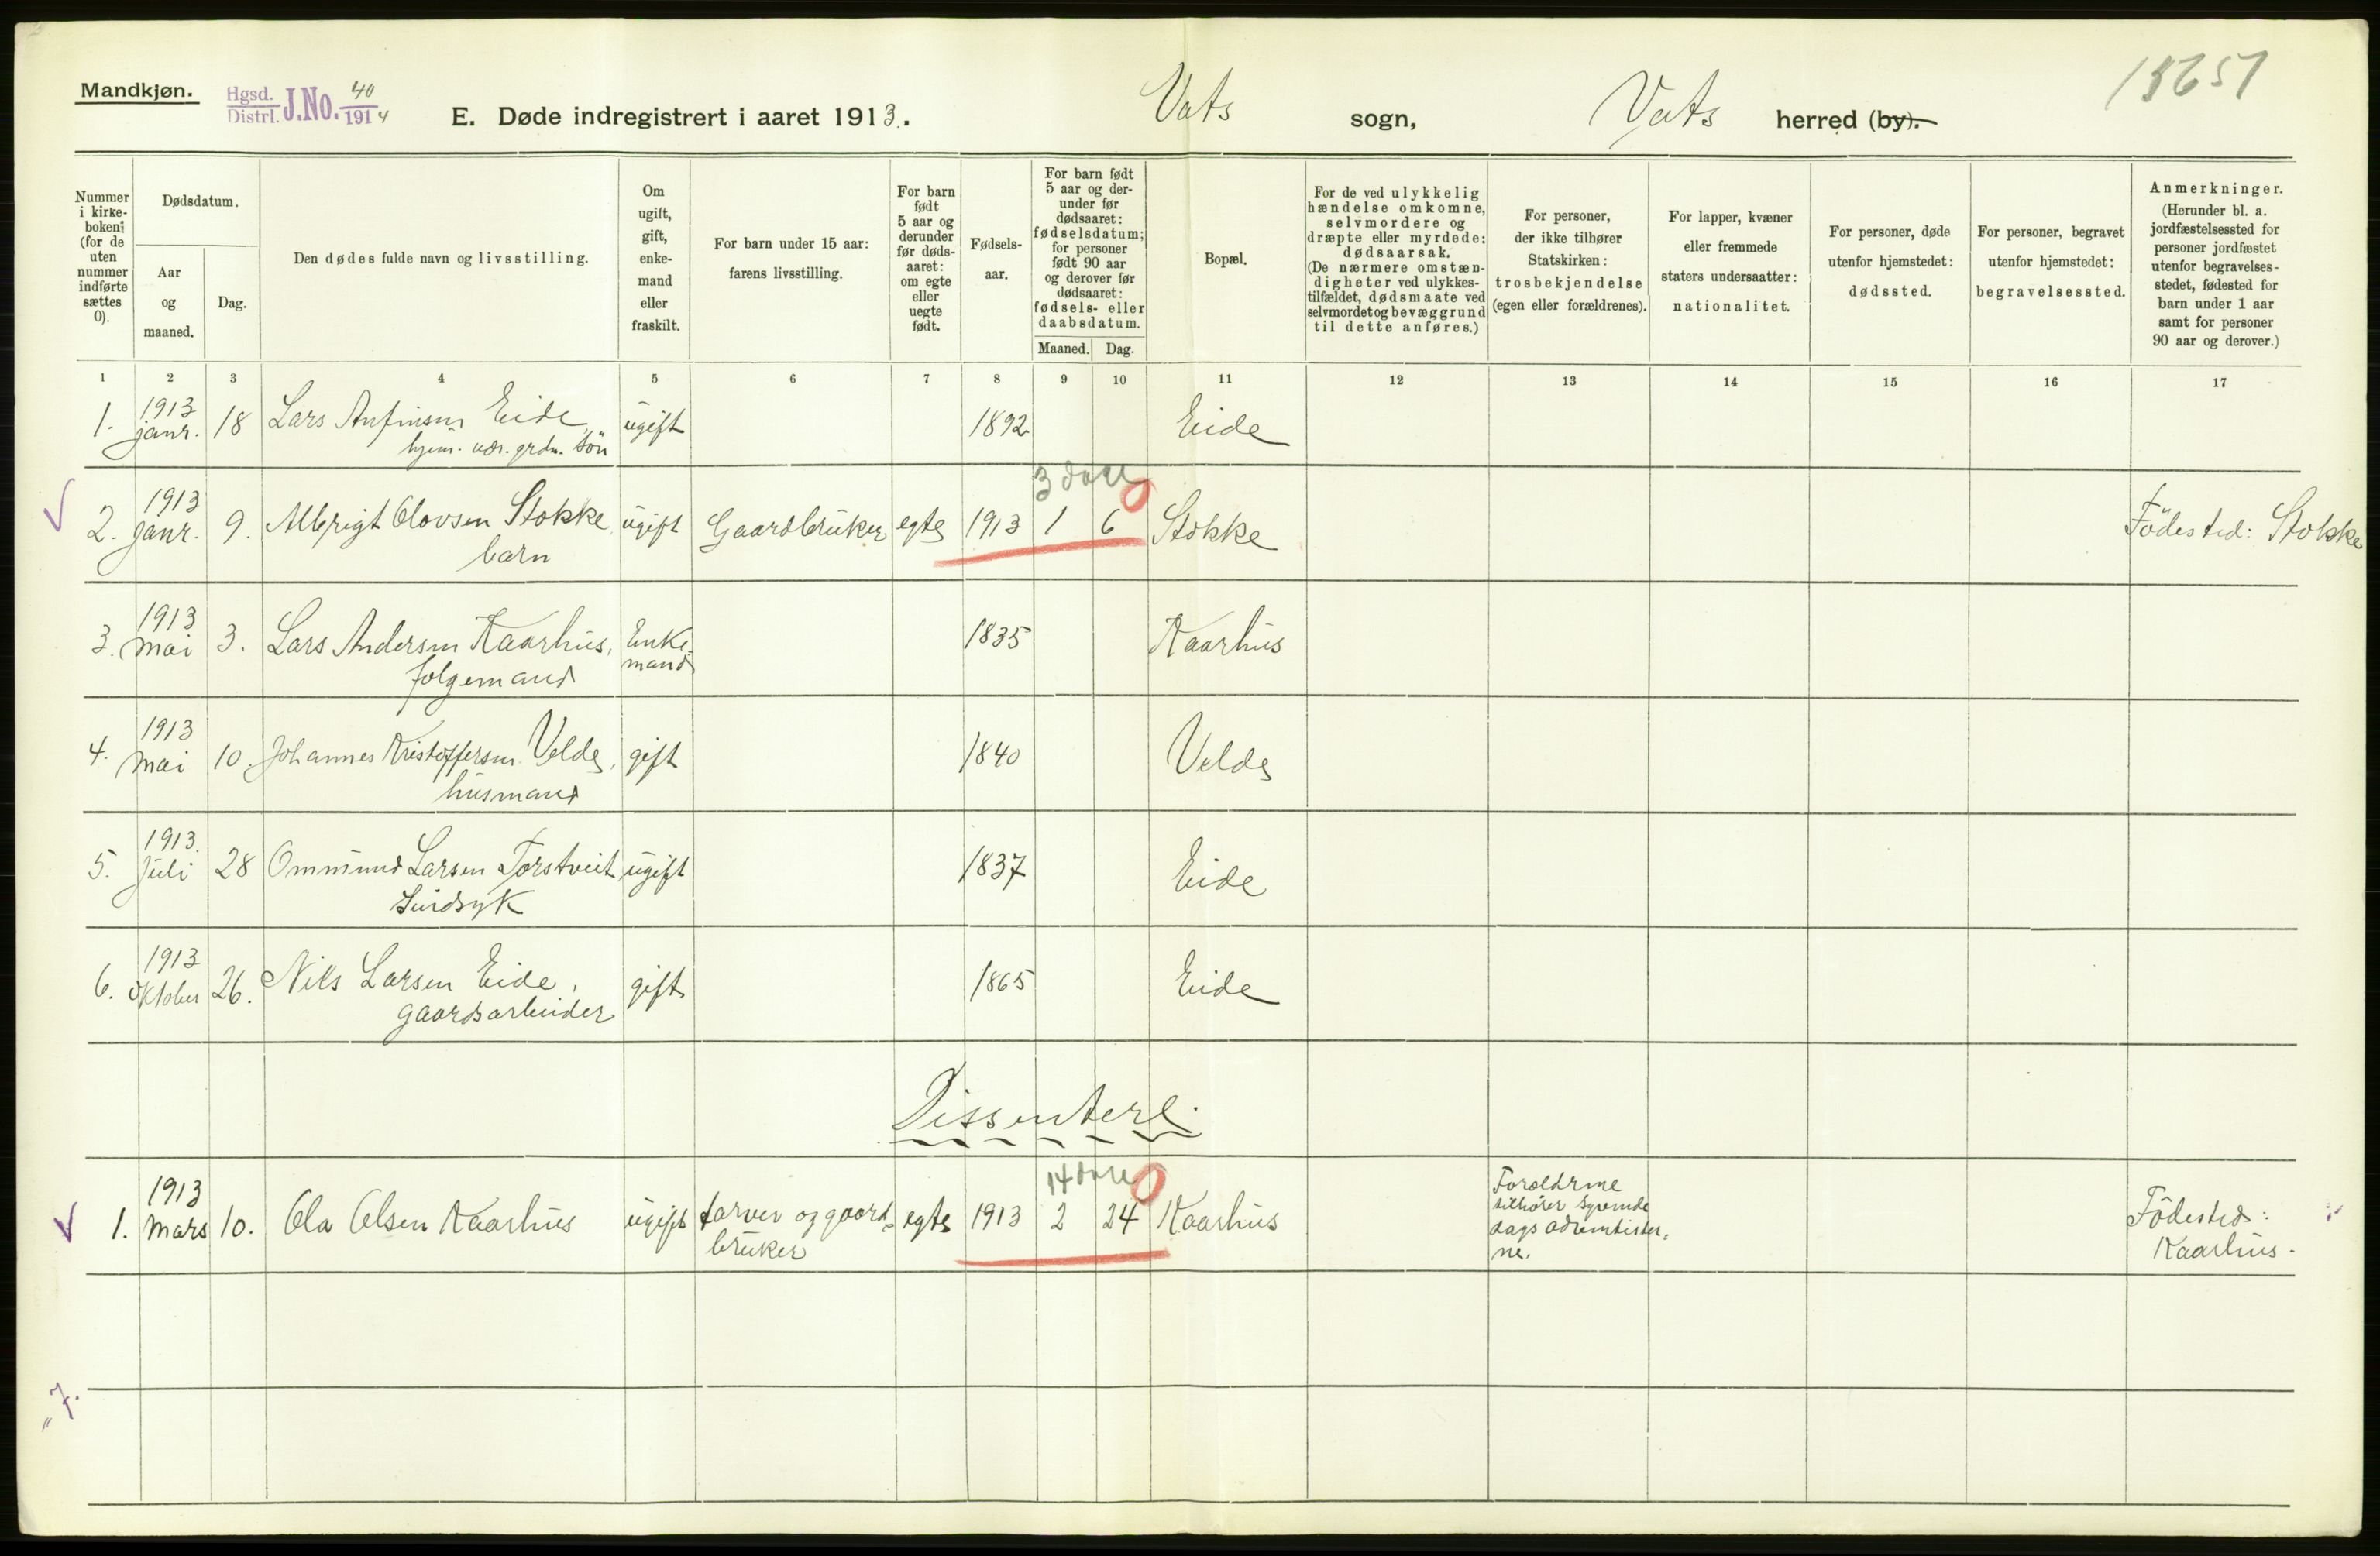 Mandkjøn.
Hgsd. Distrl. J.No. 40 1914
E. Døde indregistrert i aaret 1913.
Vats sogn,
Vats herred (by).
15651
Nummer i kirke-boken (for de uten nummer indførte sættes 0).
Dødsdatum.
Aar og maaned.
Dag.
Den dødes fulde navn og livsstilling.
Om ugift, gift, enke-mand eller fraskilt.
For barn under 15 aar: farens livsstilling.
For barn født 5 aar og derunder før døds-aaret: om egte eller uegte født.
Fødsels-aar.
For barn født 5 aar og der-under før dødsaaret: fødselsdatum; for personer født 90 aar og derover før dødsaaret: fødsels- eller daabsdatum.
Maaned.
Dag.
Bopæl.
For de ved ulykkelig hændelse omkomne, selvmordere og dræpte eller myrdede: dødsaarsak. (De nærmere omstæn-digheter ved ulykkes-tilfældet, dødsmaate ved selvmordet og bevæggrund til dette anføres.)
For personer, der ikke tilhører Statskirken: trosbekjendelse (egen eller forældrenes).
For lapper, kvæner eller fremmede staters undersaatter: nationalitet.
For personer, døde utenfor hjemstedet: dødssted.
For personer, begravet utenfor hjemstedet: begravelsessted.
Anmerkninger. (Herunder bl. a. jordfæstelsessted for personer jordfæstet utenfor begravelses-stedet, fødested for barn under 1 aar samt for personer 90 aar og derover.)
1 2 3 4 5 6 7 8 9 10 11 12 13 14 15 16 17
1. 1913 janr. 18 Lars Anfinsen Eide, ugift 1892 Eide
hjem. vær. grdm. søn
3 dage 0
2. 1913 janr. 9. Albrigt Olovsen Stokke ugift Gaardbruker egte 1913 1 6 Stokke Födested: Stokke
barn
3. 1913 mai 3. Lars Andersen Kaarhus, Enke-mand 1835 Kaarhus
folgemand
4. 1913 mai 10. Johannes Kristoffersen Velde, gift 1840 Velde
husmand
5. 1913. Juli 28 Ommund Larsen Torstveit ugift 1837 Eide
Sindsyk
6. 1913 Oktober 26. Nils Larsen Eide, gift 1865 Eide
gaardsarbeider
Dissentere.
14 dage 0
1. 1913 Mars 10. Ola Olsen Kaarhus ugift farver og gaard-bruker egte 1913 2 24 Kaarhus Forældrene tilhører syvende dags adventister-ne. Födested: Kaarhus.
7.